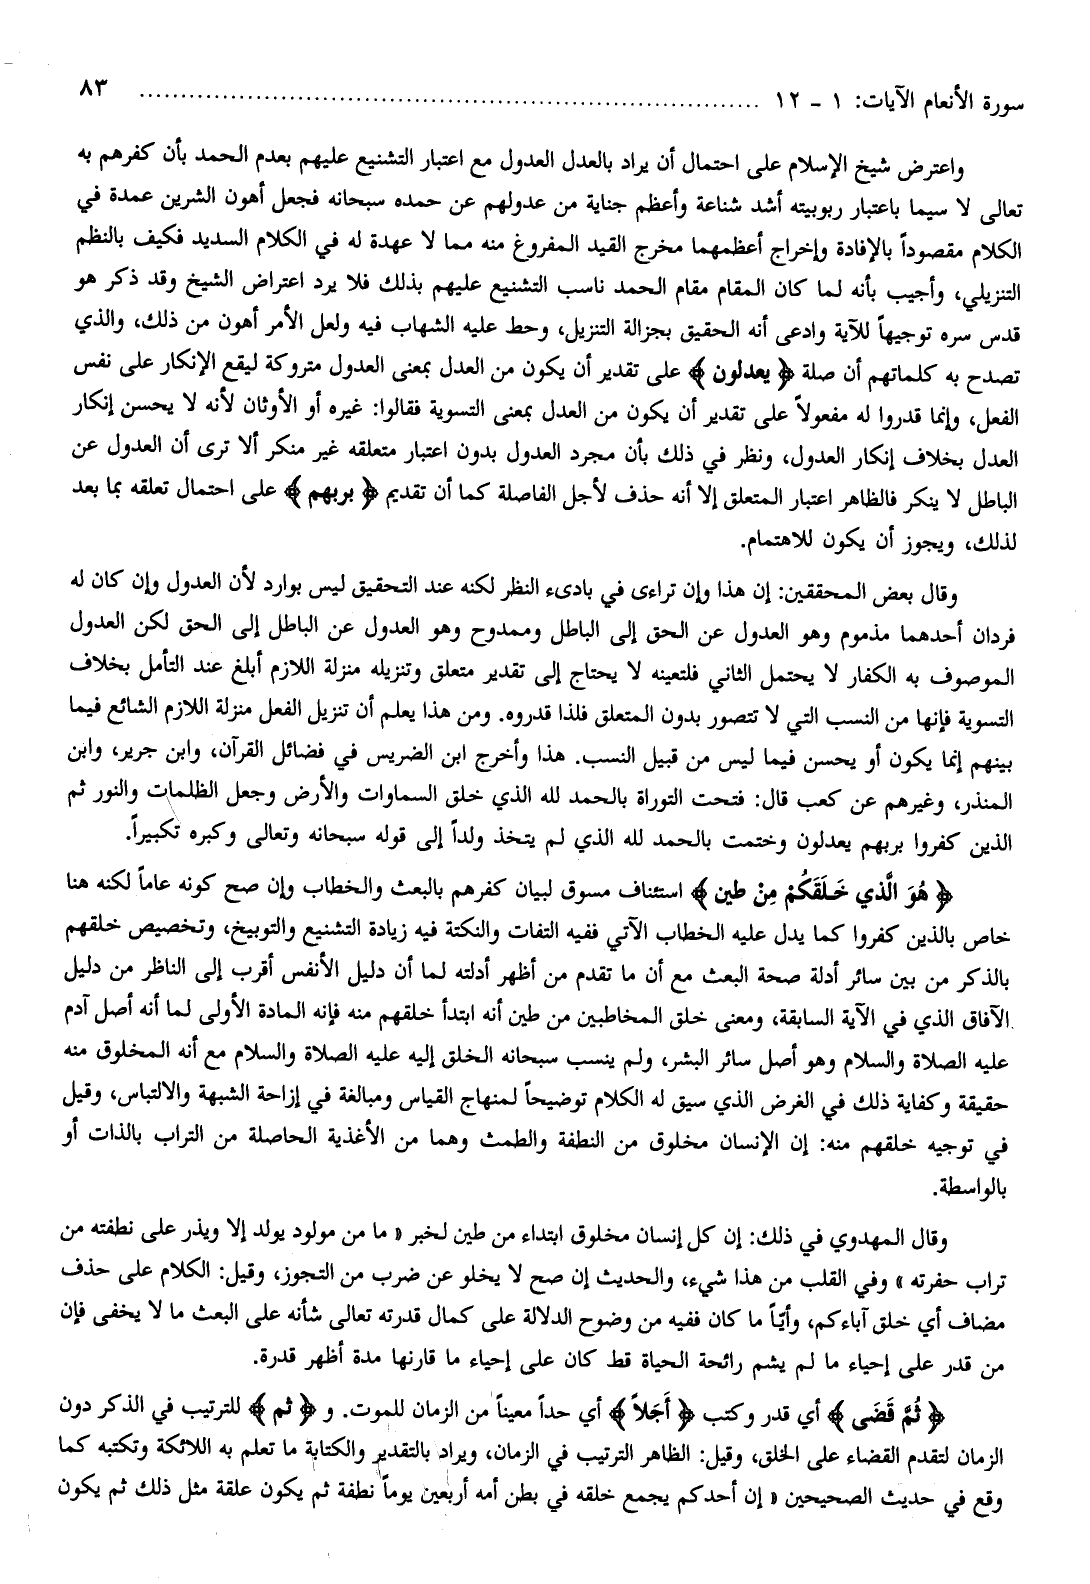 سورة الأنعام الآيات: ١ - ١٢ ........................................................................... ٨٣
واعترض شيخ الإسلام على احتمال أن يراد بالعدل العدول مع اعتبار التشنيع عليهم بعدم الحمد بأن كفرهم به
تعالى لا سيما باعتبار ربوبيته أشد شناعة وأعظم جناية من عدولهم عن حمده سبحانه فجعل أهون الشرين عمدة في
الكلام مقصوداً بالإفادة وإخراج أعظمهما مخرج القيد المفروغ منه مما لا عهدة له في الكلام السديد فكيف بالنظم
التنزيلي، وأجيب بأنه لما كان المقام مقام الحمد ناسب التشنيع عليهم بذلك فلا يرد اعتراض الشيخ وقد ذكر هو
قدس سره توجيهاً للآية وادعى أنه الحقيق بجزالة التنزيل، وحط عليه الشهاب فيه ولعل الأمر أهون من ذلك، والذي
تصدح به كلماتهم أن صلة ﴿ يعدلون ﴾ على تقدير أن يكون من العدل بمعنى العدول متروكة ليقع الإنكار على نفس
الفعل، وإنما قدروا له مفعولاً على تقدير أن يكون من العدل بمعنى التسوية فقالوا: غيره أو الأوثان لأنه لا يحسن إنكار
العدل بخلاف إنكار العدول، ونظر في ذلك بأن مجرد العدول بدون اعتبار متعلقه غير منكر ألا ترى أن العدول عن
الباطل لا ينكر فالظاهر اعتبار المتعلق إلا أنه حذف لأجل الفاصلة كما أن تقديم ﴿ بربهم ﴾ على احتمال تعلقه بما بعد
لذلك، ويجوز أن يكون للاهتمام.
وقال بعض المحققين: إن هذا وإن تراءى في بادىء النظر لكنه عند التحقيق ليس بوارد لأن العدول وإن كان له
فردان أحدهما مذموم وهو العدول عن الحق إلى الباطل وممدوح وهو العدول عن الباطل إلى الحق لكن العدول
الموصوف به الكفار لا يحتمل الثاني فلتعينه لا يحتاج إلى تقدير متعلق وتنزيله منزلة اللازم أبلغ عند التأمل بخلاف
التسوية فإنها من النسب التي لا تتصور بدون المتعلق فلذا قدروه. ومن هذا يعلم أن تنزيل الفعل منزلة اللازم الشائع فيما
بينهم إنما يكون أو يحسن فيما ليس من قبيل النسب. هذا وأخرج ابن الضريس في فضائل القرآن، وابن جرير، وابن
المنذر، وغيرهم عن كعب قال: فتحت التوراة بالحمد لله الذي خلق السماوات والأرض وجعل الظلمات والنور ثم
الذين كفروا بربهم يعدلون وختمت بالحمد لله الذي لم يتخذ ولداً إلى قوله سبحانه وتعالى وكبره تكبيراً.
﴿ هُوَ الَّذي خَلَقَكُمْ مِنْ طين ﴾ استئناف مسوق لبيان كفرهم بالبعث والخطاب وإن صح كونه عاماً لكنه هنا
خاص بالذين كفروا كما يدل عليه الخطاب الآتي ففيه التفات والنكتة فيه زيادة التشنيع والتوبيخ، وتخصيص خلقهم
بالذكر من بين سائر أدلة صحة البعث مع أن ما تقدم من أظهر أدلته لما أن دليل الأنفس أقرب إلى الناظر من دليل
الآفاق الذي في الآية السابقة، ومعنى خلق المخاطبين من طين أنه ابتدأ خلقهم منه فإنه المادة الأولى لما أنه أصل آدم
عليه الصلاة والسلام وهو أصل سائر البشر، ولم ينسب سبحانه الخلق إليه عليه الصلاة والسلام مع أنه المخلوق منه
حقيقة وكفاية ذلك في الغرض الذي سيق له الكلام توضيحاً لمنهاج القياس ومبالغة في إزاحة الشبهة والالتباس، وقيل
في توجيه خلقهم منه: إن الإنسان مخلوق من النطفة والطمث وهما من الأغذية الحاصلة من التراب بالذات أو
بالواسطة.
وقال المهدوي في ذلك: إن كل إنسان مخلوق ابتداء من طين لخبر « ما من مولود يولد إلا ويذر على نطفته من
تراب حفرته » وفي القلب من هذا شيء، والحديث إن صح لا يخلو عن ضرب من التجوز، وقيل: الكلام على حذف
مضاف أي خلق آباءكم، وأيّاً ما كان ففيه من وضوح الدلالة على كمال قدرته تعالى شأنه على البعث ما لا يخفى فإن
من قدر على إحياء ما لم يشم رائحة الحياة قط كان على إحياء ما قارنها مدة أظهر قدرة.
﴿ ثُمَّ قَضَى ﴾ أي قدر وكتب ﴿ أَجَلاً ﴾ أي حداً معيناً من الزمان للموت. و ﴿ ثم ﴾ للترتيب في الذكر دون
الزمان لتقدم القضاء على الخلق، وقيل: الظاهر الترتيب في الزمان، ويراد بالتقدير والكتابة ما تعلم به اللائكة وتكتبه كما
وقع في حديث الصحيحين « إن أحدكم يجمع خلقه في بطن أمه أربعين يوماً نطفة ثم يكون علقة مثل ذلك ثم يكون